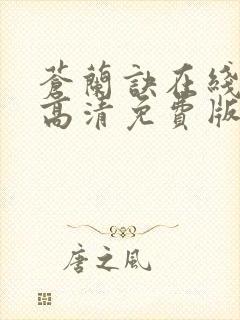 蒼蘭訣在綫
高清免費版
唐之風